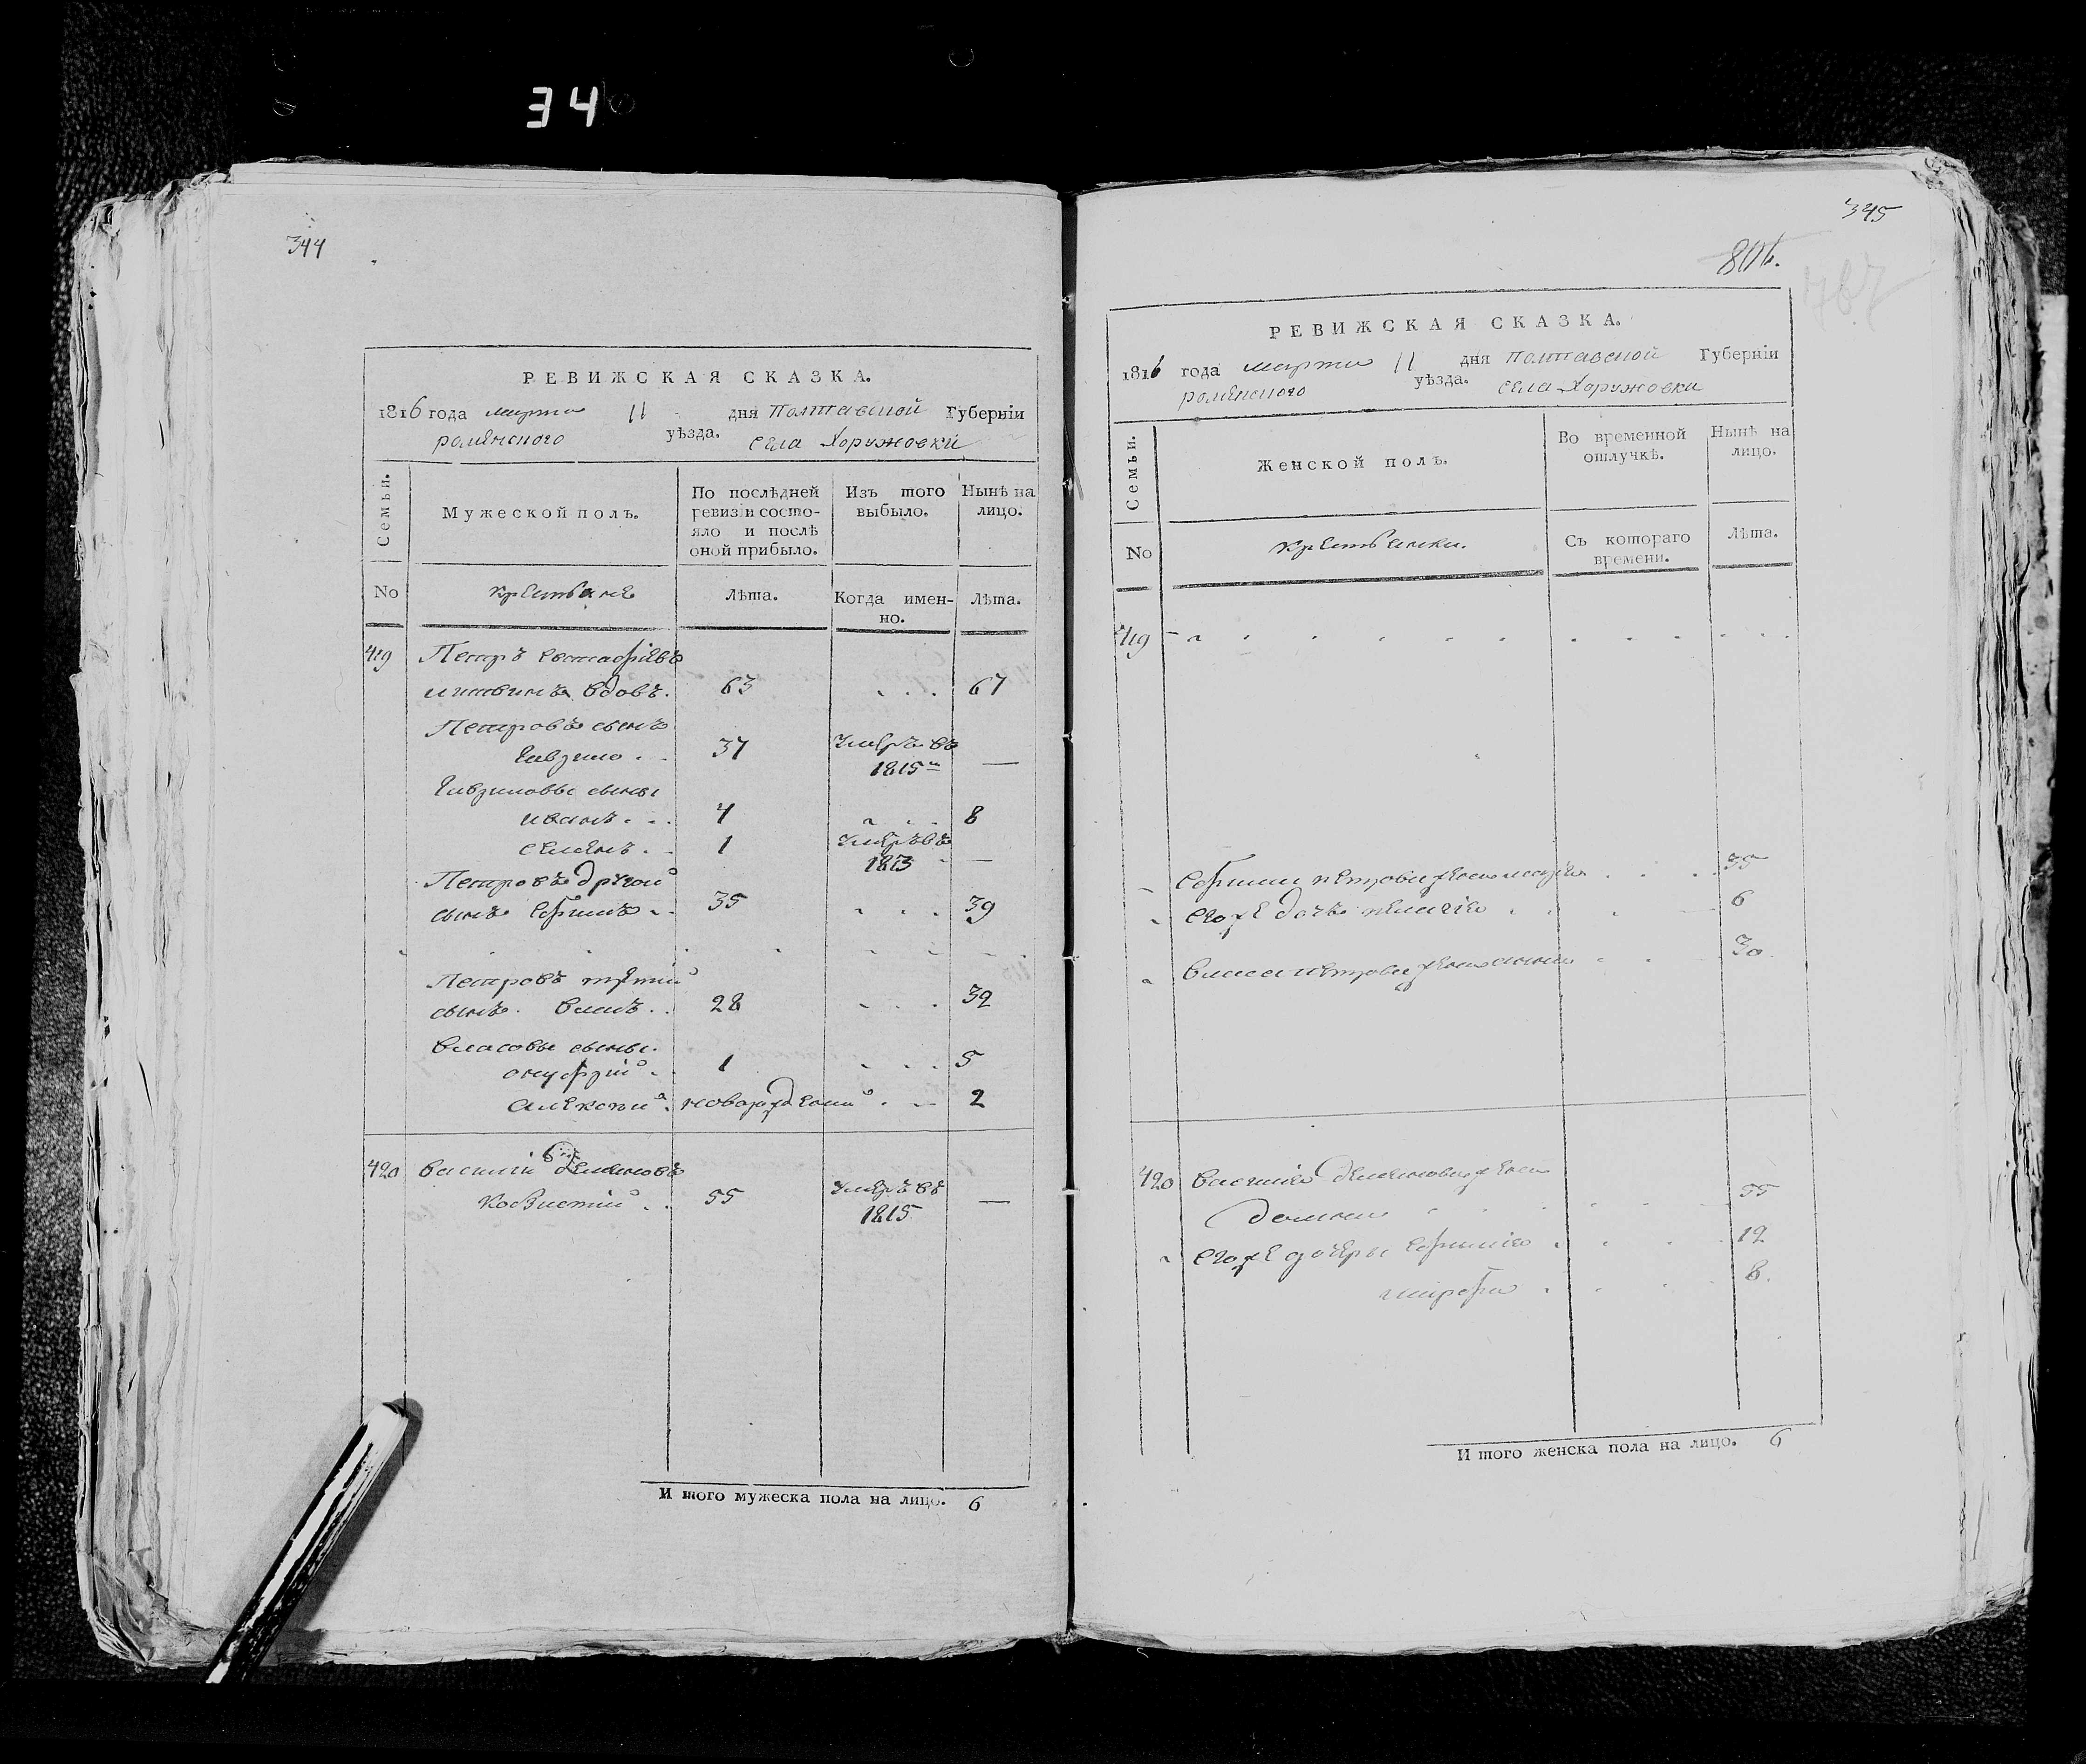 34
344
РЕВИЖСКАЯ СКАЗКА.
1816 года марта 11 дня Полтавской Губерніи
роменского уѣзда. села Хоружовки
Семьи.
Мужеской полъ.
По послѣдней ревизіи состояло и послѣ оной прибыло.
Изъ того выбыло.
Нынѣ на лицо.
No
крестьяне
Лѣта.
Когда именно.
Лѣта.
419 Петръ Евстафіевъ
литвинъ вдовъ. 63 67
Петровъ сынъ
37 Умеръ въ
1815 —
сыны
иванъ 4 8
семенъ 1 Умеръ въ
1813 —
Петровъ другой
сынъ Ефимъ 35 39
Петровъ третій
сынъ Власъ 28 32
Власовы сыны
онуфрій 1 5
Алексѣй новорожденный 2
420 василій Семеновъ
55 Умеръ въ
1815 —
И того мужеска пола на лицо. 6
345
806.
767
РЕВИЖСКАЯ СКАЗКА.
1816 года марта 11 дня Полтавской Губерніи
роменского уѣзда. села Хоружовки
Семьи.
Женской полъ.
Во временной отлучкѣ.
Нынѣ на лицо.
No
крестьянки.
Съ котораго времени.
Лѣта.
419
Ефима петрова жена 35
его же дочь 6
власа петрова жена 30
420 василія жена
домна 55
его же дочери 19
8.
И того женска пола на лицо. 6